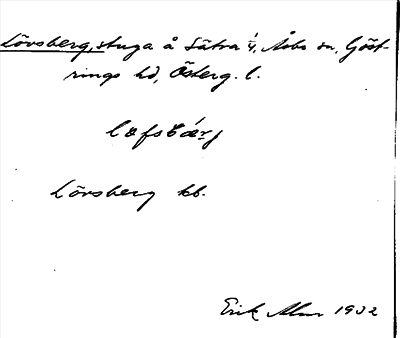 Lövsberg, stuga å Sätra 1/4, Åsbo sn, Göst-
rings hd, Österg. l.
Lövsberg kb.
Erik Alm 1932